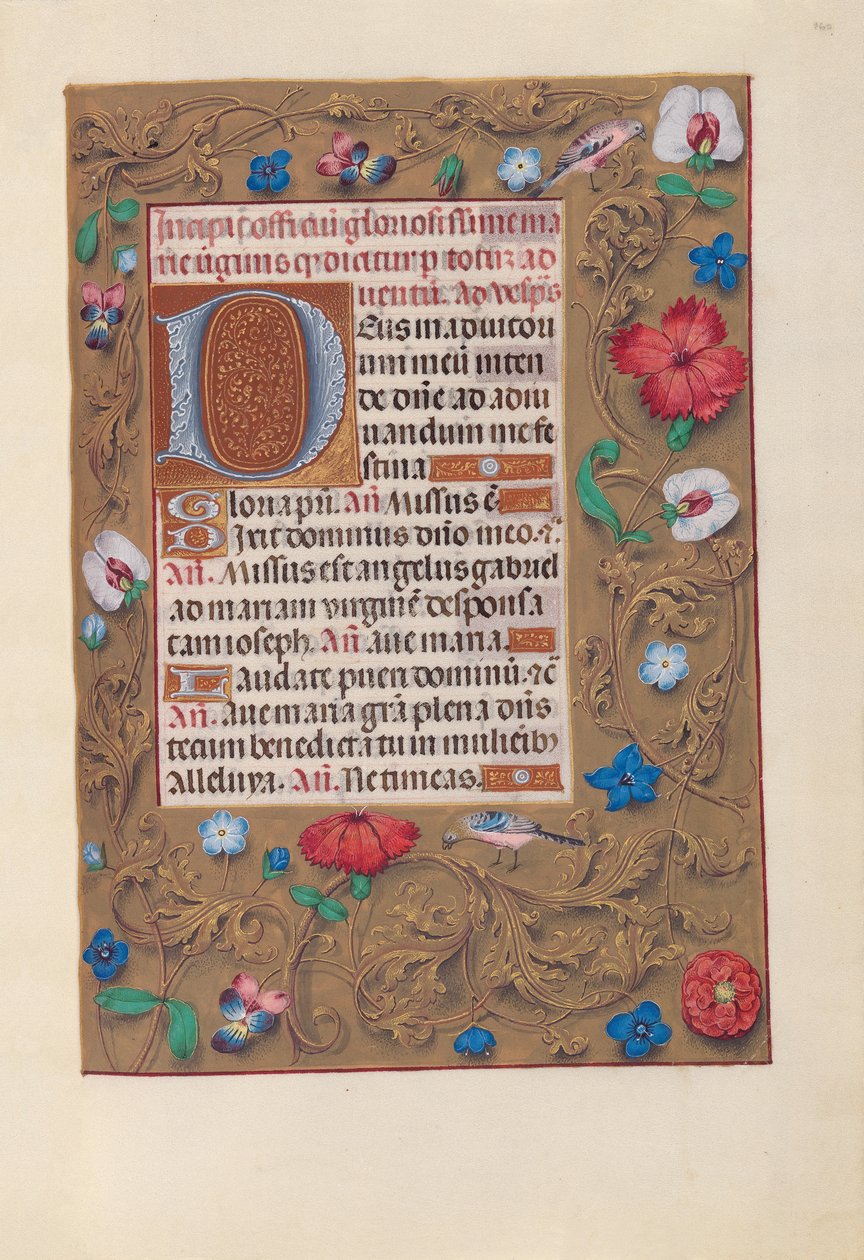 Incipit officiū gloriosissime ma
rie ūginis q̄ dicitur p totū ad
uentū. Ad vesp̄s
Deus in adiutori
um meū inten
de dn̄e ad adiu
uandum me fe
stina
Gloria pr̄i. An̄. Missus ē
Dixit dominus dn̄o meo. ⁊c̄.
An̄. Missus est angelus gabriel
ad mariam virginē desponsa
tam ioseph. An̄. aue maria.
Laudate pueri dominū. ⁊c̄
An̄. aue maria gr̄a plena dn̄s
tecum benedicta tu in mulierib⁊
Alleluya. An̄. Ne timeas.